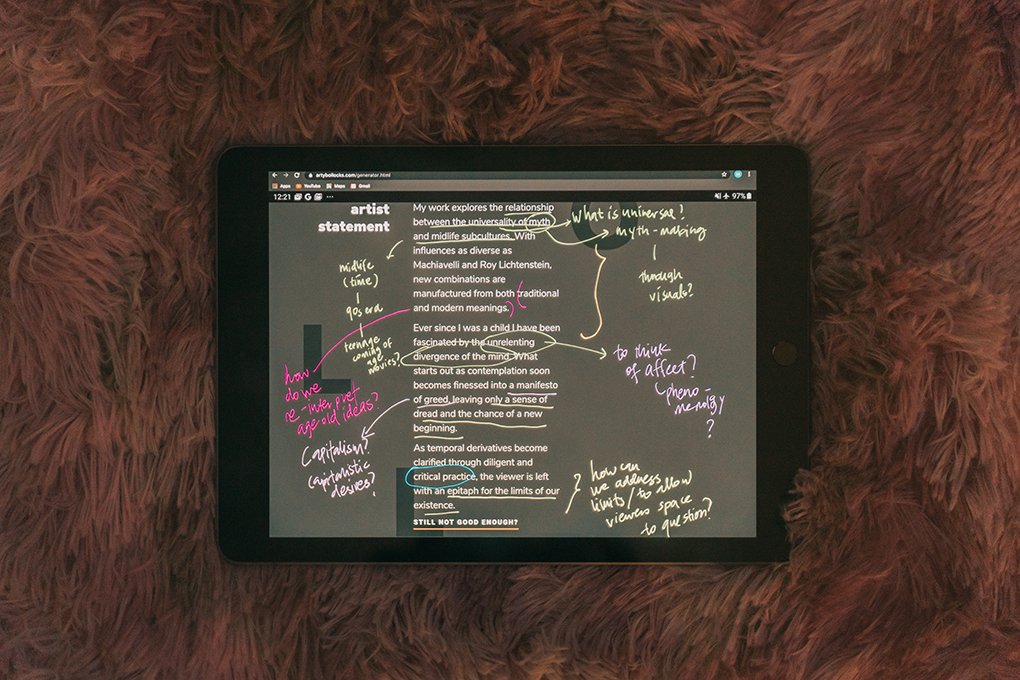 artybollocks.com/generator.html
Apps YouTube Maps Gmail
12:21 97%
artist
statement
My work explores the relationship
between the universality of myth
and midlife subcultures. With
influences as diverse as
Machiavelli and Roy Lichtenstein,
new combinations are
manufactured from both traditional
and modern meanings.
Ever since I was a child I have been
fascinated by the unrelenting
divergence of the mind. What
starts out as contemplation soon
becomes finessed into a manifesto
of greed, leaving only a sense of
dread and the chance of a new
beginning.
As temporal derivatives become
clarified through diligent and
critical practice, the viewer is left
with an epitaph for the limits of our
existence.
STILL NOT GOOD ENOUGH?
what is universal?
myth-making
through
visuals?
midlife
(time)
90s era
teenage
coming of
age
movies?
how
do we
re-interpret
age old ideas?
Capitalism?
Capitalistic
desires?
to think
of affect?
pheno-
menology
?
how can
we address
limits/to allow
viewers space
to question?
L